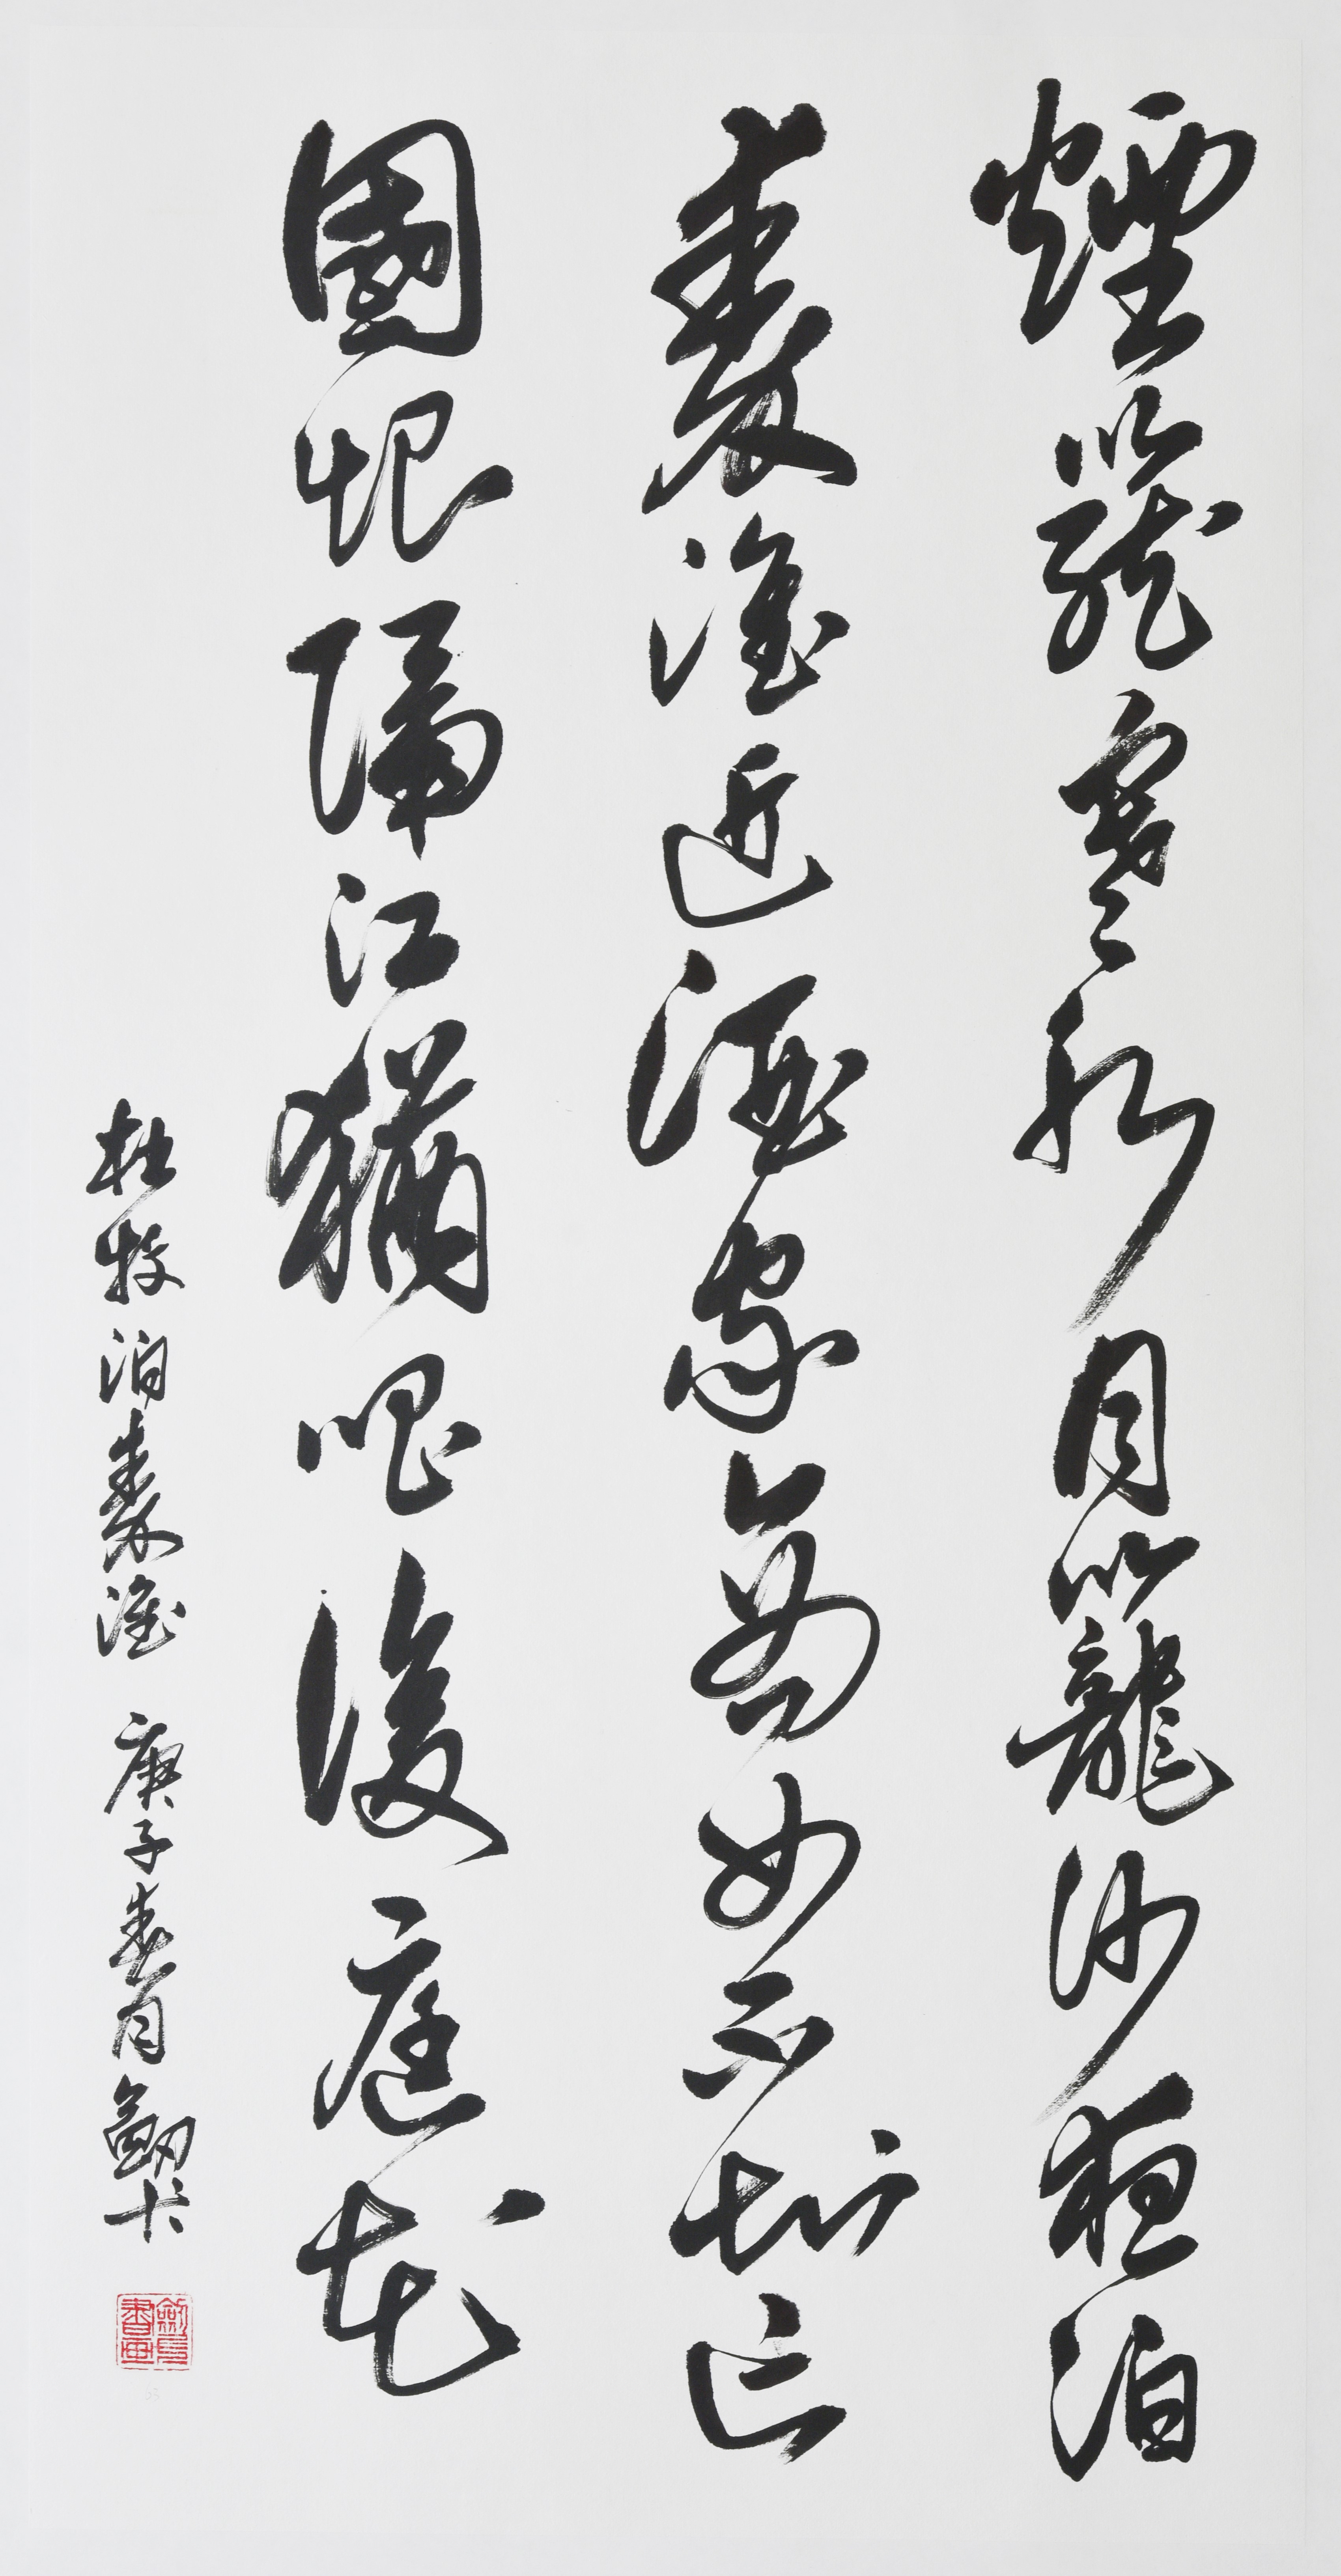 煙籠寒水月籠沙夜泊
秦淮近酒家商女不知亡
國恨隔江猶唱後庭花
杜牧泊秦淮 庚子春月劍
書画